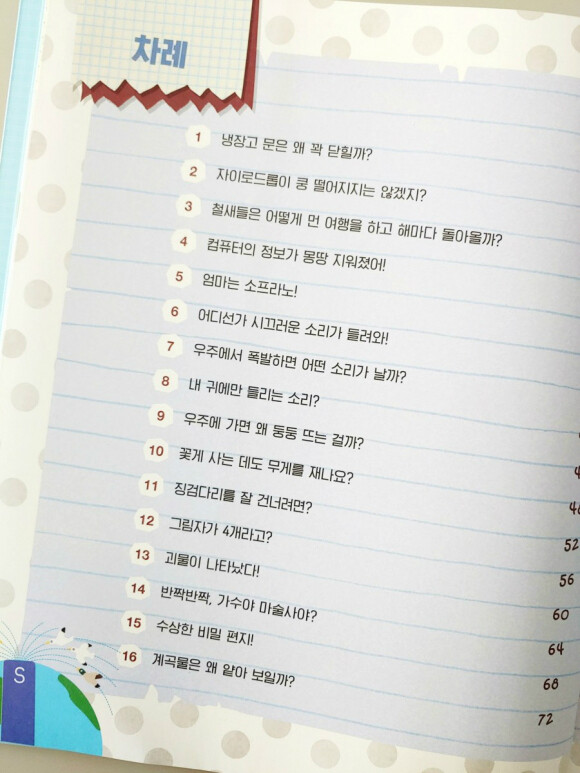 차례
1 냉장고 문은 왜 꽉 닫힐까?
2 자이로드롭이 쿵 떨어지지는 않겠지?
3 철새들은 어떻게 먼 여행을 하고 해마다 돌아올까?
4 컴퓨터의 정보가 몽땅 지워졌어!
5 엄마는 소프라노!
6 어디선가 시끄러운 소리가 들려와!
7 우주에서 폭발하면 어떤 소리가 날까?
8 내 귀에만 들리는 소리?
9 우주에 가면 왜 둥둥 뜨는 걸까?
10 꽃게 사는 데도 무게를 재나요?
11 징검다리를 잘 건너려면? 52
12 그림자가 4개라고? 56
13 괴물이 나타났다! 60
14 반짝반짝, 가수야 마술사야? 64
15 수상한 비밀 편지! 68
16 계곡물은 왜 얕아 보일까? 72
S